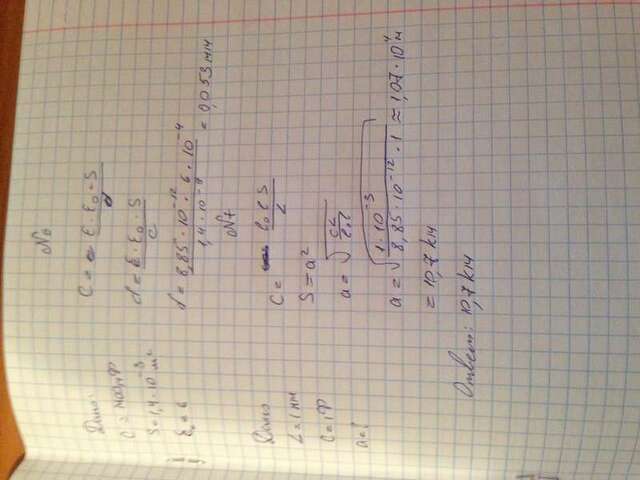 №6
Дано:
C = 1400пФ
S = 1,4 · 10⁻³ м²
ε = 6
C = ε · ε₀ · S / d
d = ε · ε₀ · S / C
d = 8,85 · 10⁻¹² · 6 · 10⁻⁴ / 1,4 · 10⁻⁹ = 0,053 мм
№7
Дано
L = 1 мм
C = 1 Ф
a = ?
C = ε₀ ε S / L
S = a²
a = √(CL / ε₀ε)
a = √(1 · 10⁻³ / 8,85 · 10⁻¹² · 1) ≈ 1,07 · 10⁴ м
= 10,7 км
Ответ: 10,7 км